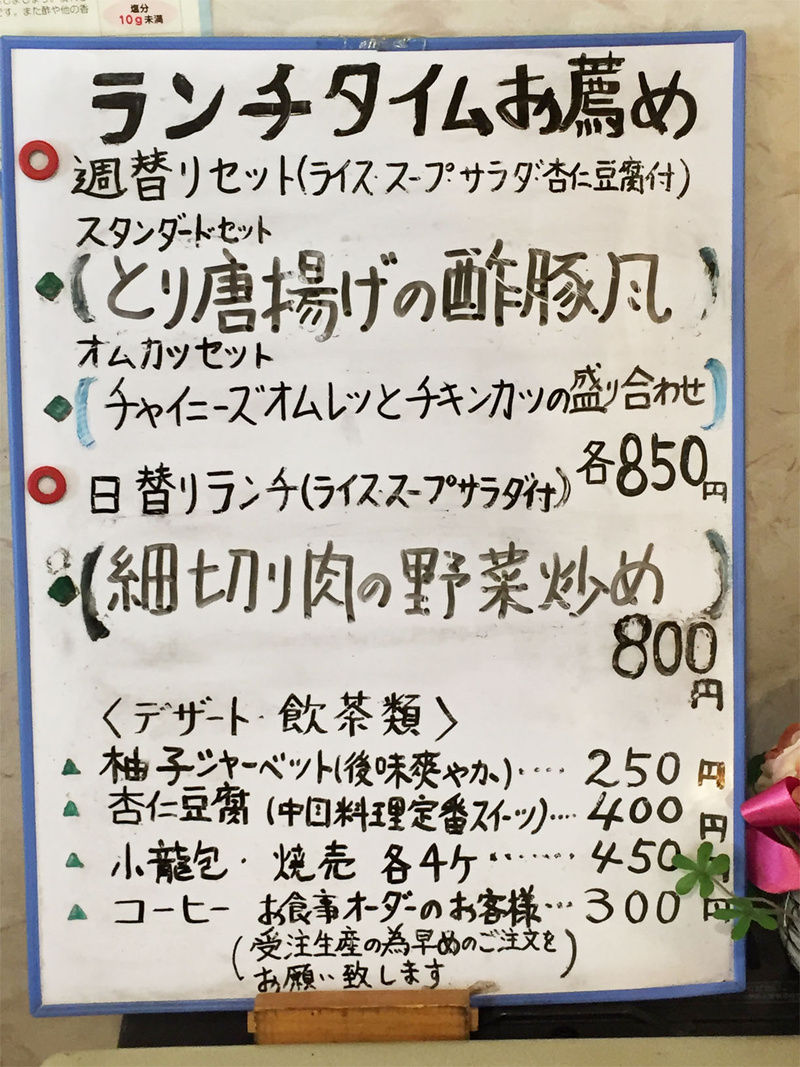 です。また酢や他の香
塩分
10g未満
ランチタイムお薦め
週替りセット(ライス・スープ・サラダ・杏仁豆腐付)
スタンダードセット
(とり唐揚げの酢豚風)
オムカツセット
(チャイニーズオムレツとチキンカツの盛り合わせ)
各850円
日替りランチ(ライス・スープサラダ付)
(細切り肉の野菜炒め)
800円
〈デザート・飲茶類〉
柚子シャーベット(後味爽やか)････250円
杏仁豆腐(中国料理定番スイーツ)････400円
小龍包・焼売 各4ケ･･･････450円
コーヒー お食事オーダーのお客様･･･300円
(受注生産の為早めのご注文を
お願い致します)